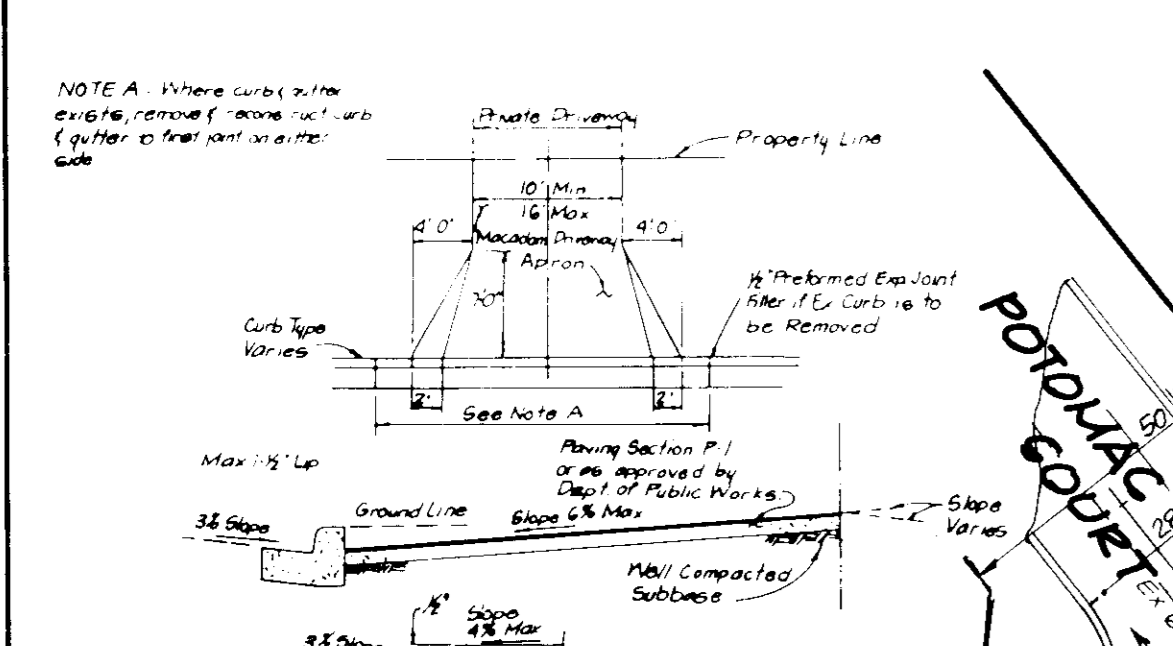 NOTE A - Where curb & gutter
exists, remove & reconstruct curb
& gutter to first joint on either
side
Private Driveway
Property Line
10' Min
16' Max
4'0"
4'0"
Macadam Driveway
Apron
Curb Type
Varies
½" Preformed Exp Joint
Filler if Ex Curb is to
be Removed
2'
2'
See Note A
Max 1-½" Lip
Paving Section P-1
or as approved by
Dept. of Public Works
3% Slope
Ground Line
Slope 6% Max
Slope
Varies
Well Compacted
Subbase
½"
Slope
4% Max
3% Slope
POTOMAC
COURT
50
28
Ex